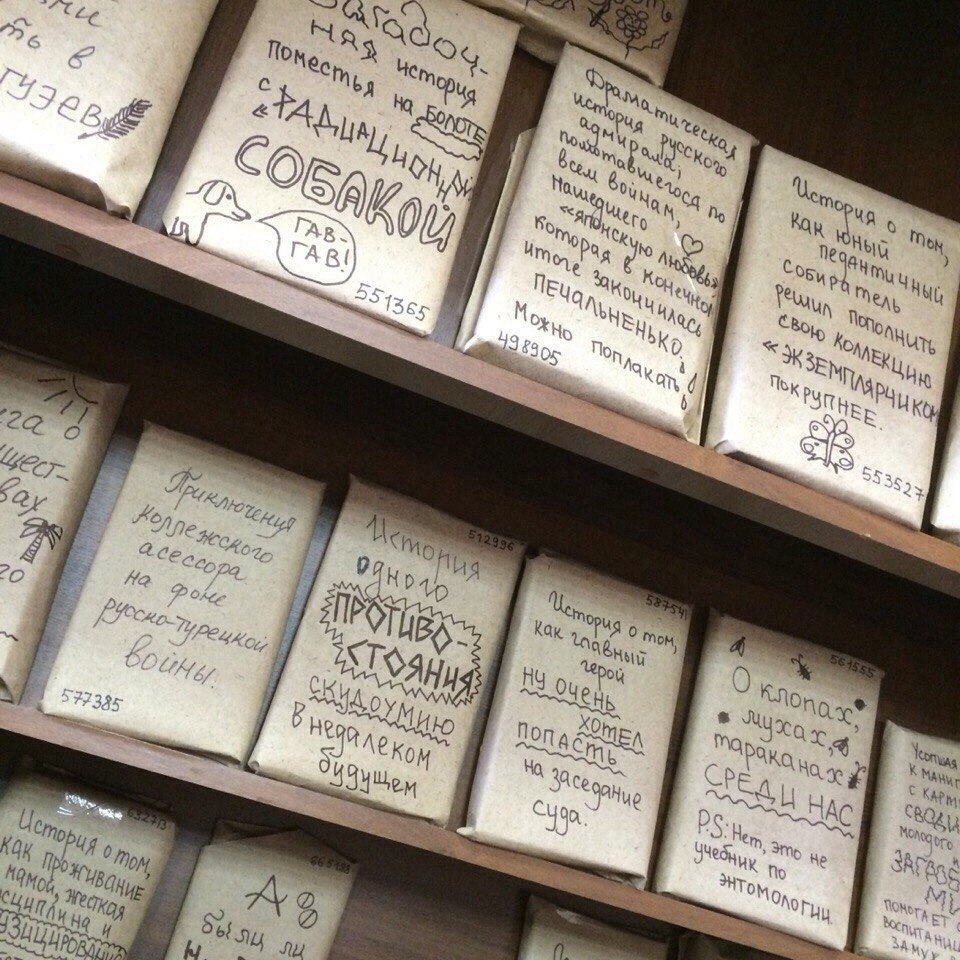 ть в
гузев
Загадоч-
ная история
поместья на болоте
с «РАДИАЦИОННОЙ
СОБАКОЙ
ГАВ-
ГАВ!
551365
Драматическая
история русского
адмирала,
помотавшегося по
всем войнам,
нашедшего
«японскую любовь»
которая в конечном
итоге закончилась
ПЕЧАЛЬНЕНЬКО.
Можно поплакать
498905
История о том,
как юный
педантичный
собиратель
решил пополнить
свою коллекцию
«ЭКЗЕМПЛЯРЧИКОМ
покрупнее.
553527
га о
щест-
вах
го
Приключения
коллежского
асессора
на фоне
русско-турецкой
войны.
577385
512996
История
одного
ПРОТИВО-
СТОЯНИЯ
СКУДОУМИЮ
в недалеком
будущем
58754
История о том,
как главный
герой
ну очень
хотел
попасть
на заседание
суда.
561555
О клопах,
мухах,
тараканах
СРЕДИ НАС
P.S: Нет, это не
учебник по
энтомологии.
Усопшая
к мани
с карт
молодого
ЗАГРОБ
МИ
помогает
воспитаниц
замуж
63273
История о том,
как проживание
мамой, жесткая
сциплина и
узицировани
665183
А
были ли